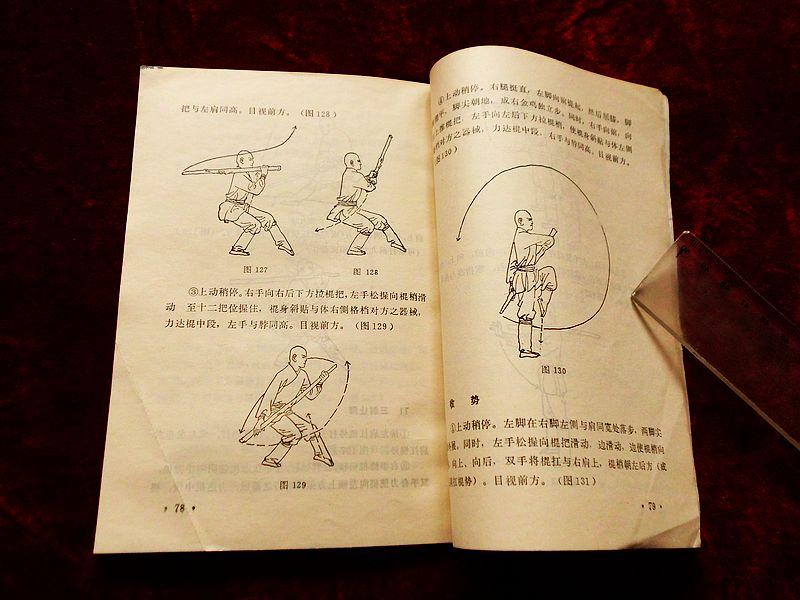 把与左肩同高。目视前方。(图128)
图 127
图 128
③上动稍停。右手向右后下方拉棍把,左手松握向棍梢滑
动 至十二把位握住,棍身斜贴与体右侧格档对方之器械,
力达棍中段,左手与脖同高。目视前方。(图129)
图 129
• 78 •
④上动稍停。右腿挺直,左脚向前提起,然后屈膝,脚
脚尖朝地,成右金鸡独立步。同时,右手向前,向
棍把,左手向左后下方拉棍梢,使棍身斜贴与体左侧
对方之器械,力达棍中段,右手与脖同高。目视前方。
图130)
图 130
收 势
①上动稍停。左脚在右脚左侧与肩同宽处落步,两脚尖
同时,左手松握向棍把滑动,边滑动,边使棍梢向
向上、向后,双手将棍扛与右肩上,棍梢朝左后方(成
扛棍势)。目视前方。(图131)
• 79 •